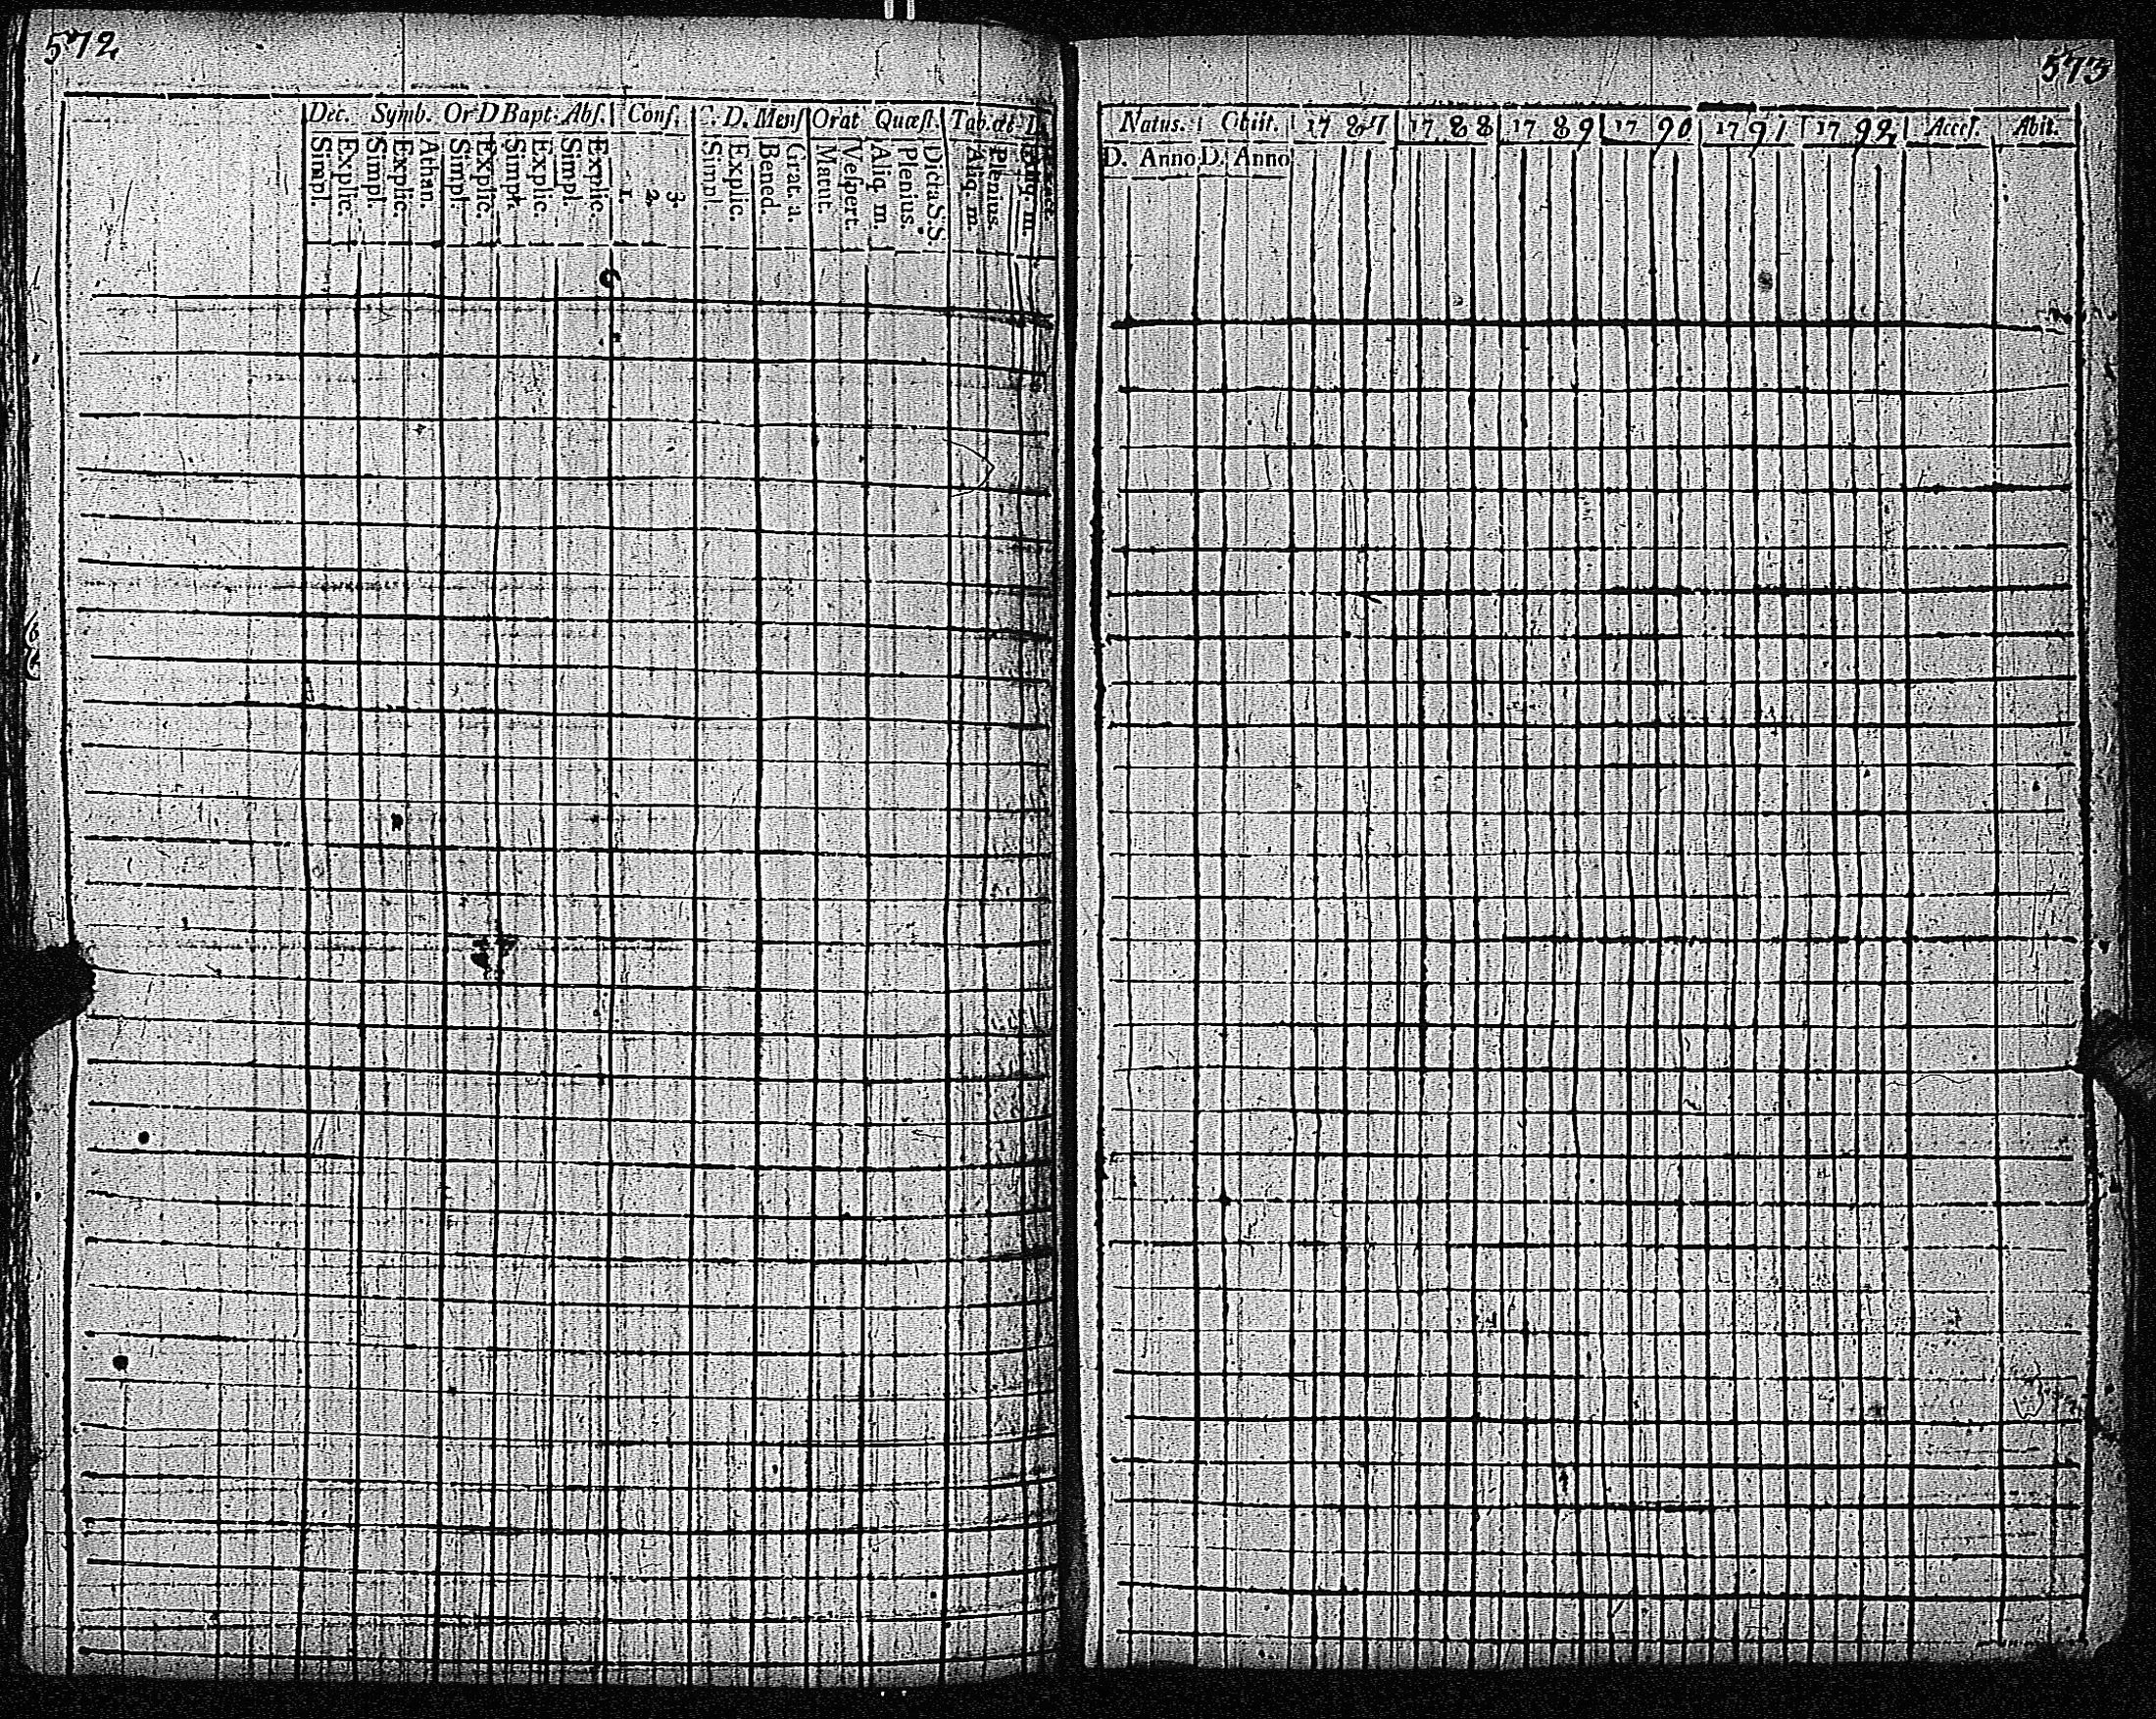 572
Dec. Symb. Or D Bapt: Abs. Conf. C. D. Mens Orat Quæst. Tab. æt
Simpl. Explic. Simpl. Explic. Athan. Simpl. Explic. Simpl. Explic. Simpl. Explic. 1. 2. 3. Simpl. Explic. Bened. Grat. a. Matut. Vespert. Aliq. m. Plenius. Dicta S.S. Aliq. m. Plenius.
573
Natus. Obiit. 1787 1788 1789 1790 1791 1792 Access. Abit.
D. Anno D. Anno